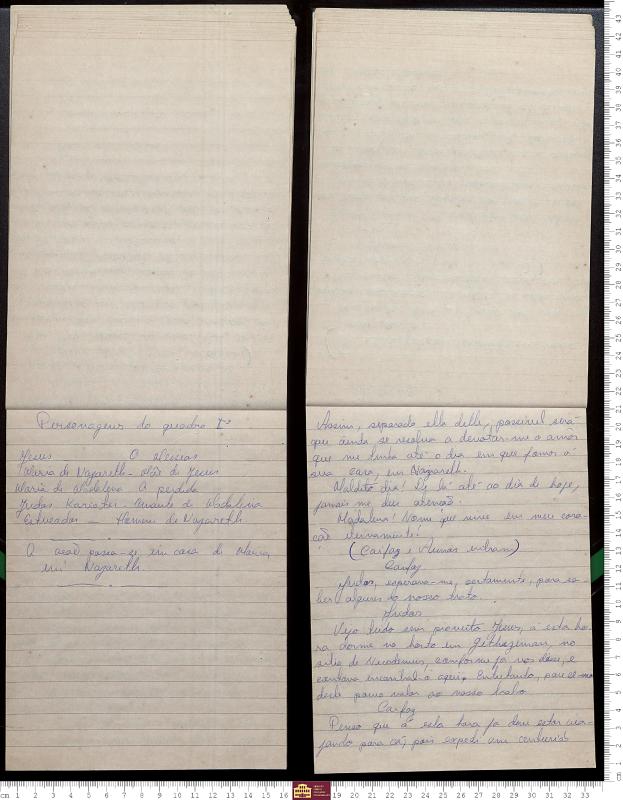 Personagens do quadro 1º
Jesus - O Messias
Maria de Nazareth - Mãe de Jesus
Maria de Magdala - A perdida
Judas Karioth - Amante de Magdalena
Estrevados - Homens de Nazareth
A acção passa-se em casa de Maria,
em Nazareth.
Assim, separada ella delle, possivel será
que ainda se resolva a devotar-me o amôr
que me tinha até o dia em que fomos á
sua casa, em Nazareth.
Maldito dia! De lá até ao dia de hoje,
jamais me deu attenção.
Magdalena! Nome que vive em meu cora-
ção eternamente.
(Caifaz e entram)
Caifaz
Judas, esperava-me, certamente, para sa-
ber algures do nosso trato.
Judas
Vejo tudo sem proveito. Jesus, a esta ho-
ra dorme no horto em Gethseman, no
sitio de Nicodemus, conforme já vos disse, e
contava encontral-o aqui. Entretanto, parece-me
deste pouco valor ao nosso trato.
Caifaz
Penso que a esta hora já deve estar
para cá, pois expedi um centurião